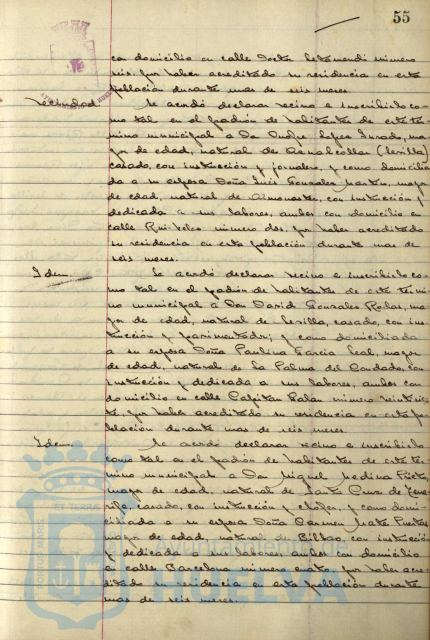 55
con domicilio en calle Doctor Letamendi número
seis, por haber acreditado su residencia en esta
población durante mas de seis meses.
Vecindad. Se acordó declarar vecino e inscribirlo co-
mo tal en el padrón de habitantes de este tér-
mino municipal a Don López Jurado, ma-
yor de edad, natural de Aznalcollar (Sevilla)
casado, con instrucción y jornalero, y como domicilia-
da a su esposa Doña González Martín, mayor
de edad, natural de Almonaster, con instrucción y
dedicada a sus labores, ambos con domicilio en
calle número dos, por haber acreditado
su residencia en esta población durante mas de
seis meses.
Idem. Se acordó declarar vecino e inscribirlo co-
mo tal en el padrón de habitantes de este térmi-
no municipal a Don David González Rodas, ma-
yor de edad, natural de Sevilla, casado, con ins-
trucción y pavimentador; y como domiciliada
a su esposa Doña Paulina García Leal, mayor
de edad, natural de La Palma del Condado, con
instrucción y dedicada a sus labores, ambos con
domicilio en calle Capitan Galán número
por haber acreditado su residencia en esta po-
blación durante mas de seis meses.
Idem. Se acordó declarar vecino e inscribirlo
como tal en el padrón de habitantes de este tér-
mino municipal a Don Miguel Medina Prieto,
mayor de edad, natural de Santa Cruz de Tene-
rife, casado, con instrucción y chófer, y como domi-
ciliada a su esposa Doña Carmen
mayor de edad, natural de Bilbao, con instrucción
y dedicada a sus labores, ambos con domicilio
en calle Barcelona número cuatro, por haber acre-
ditado su residencia en esta población durante
mas de seis meses.
PORTUS MARIS
ET TERRAE
HUELVA